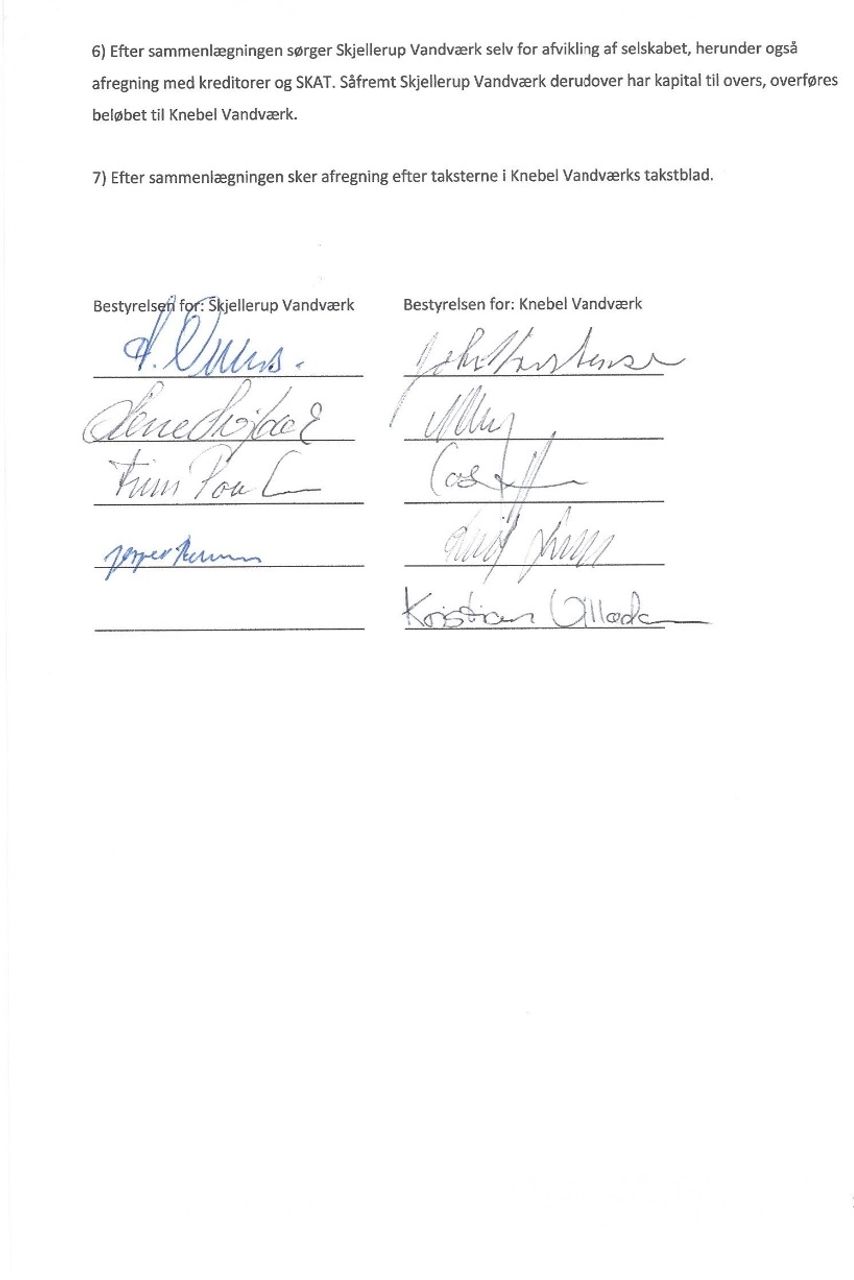 6) Efter sammenlægningen sørger Skjellerup Vandværk selv for afvikling af selskabet, herunder også
afregning med kreditorer og SKAT. Såfremt Skjellerup Vandværk derudover har kapital til overs, overføres
beløbet til Knebel Vandværk.
7) Efter sammenlægningen sker afregning efter taksterne i Knebel Vandværks takstblad.
Bestyrelsen for: Skjellerup Vandværk
Bestyrelsen for: Knebel Vandværk
Kristian